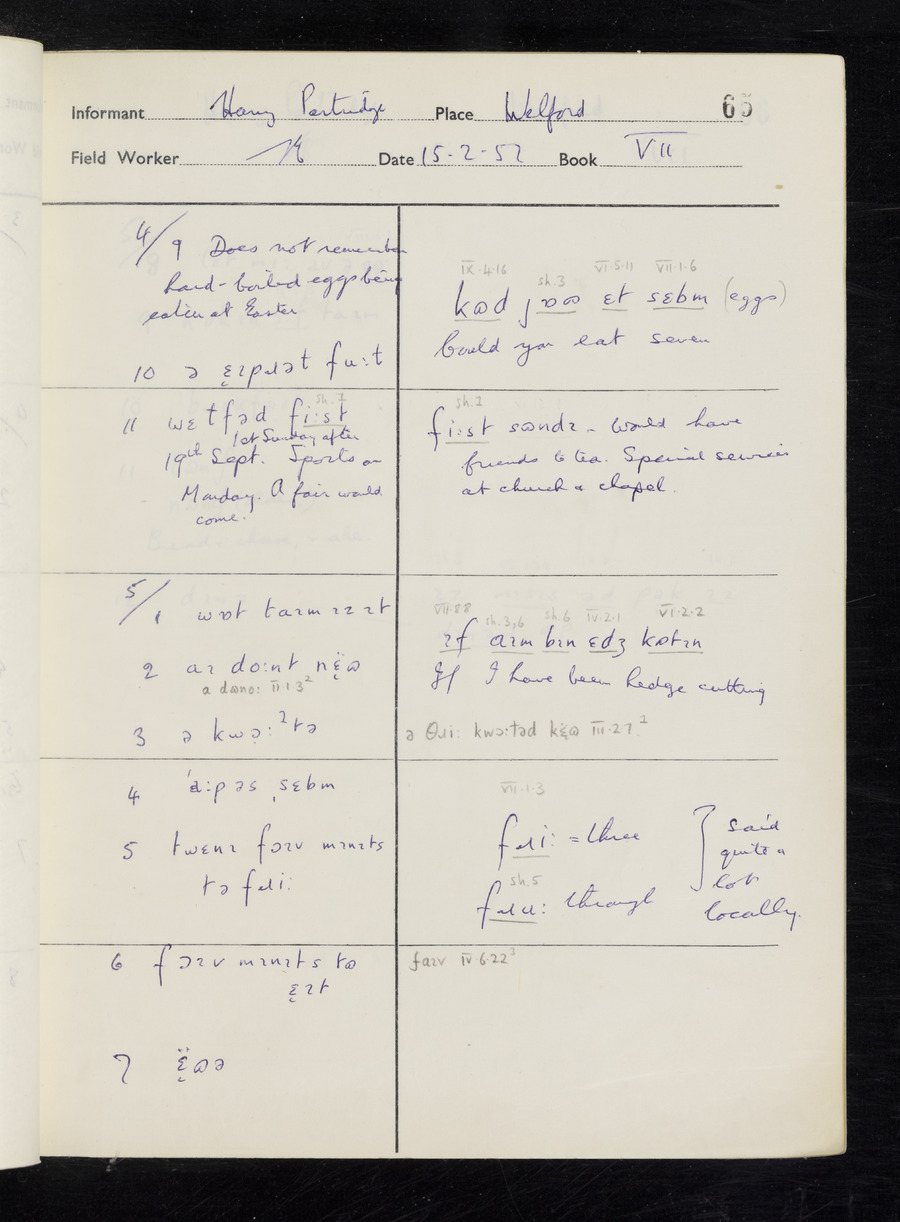 Informant Harry Partridge Place Welford 65
Field Worker Date 15-2-57 Book VII
4/9 Does not remember
hard-boiled eggs being
eaten at Easter
10 ə ɛ̨ɪpɹɪət fuːt
IX·4·16 sh.3 VI·5·11 VII·1·6
kɷd jɒɷ ɛt sɛbm (eggs)
Could you eat seven
sh.2
11 wɛtfəd fiːst
1st Sunday after
19th Sept. Sports on
Monday. A fair would
come.
sh.2
fiːst sɷndɪ - Would have
friends to tea. Special services
at church & chapel.
5/1 wɒt taɪm ɪz ɪt
2 aɪ doːnt nɛ̨̈ɷ
a dɷnoː II·1·3²
3 ə kwɔ̣ːˀtə
VII·8·8 sh.3,6 sh.6 IV·2·1 VI·2·2
ɪf aɪm bɪn ɛdʒ kɷtɪn
If I have been hedge cutting
ə θɹiː kwɔːtəd kɛ̨̈ɷ III·2·7²
4 ˈaːpəs ˌsɛbm
5 twɛnɪ fɔɪv mɪnɪts
tə fɹiː
VII·1·3
fɹiː = three
sh.5
fɹuː through
said
quite a
lot
locally.
6 fɔɪv mɪnɪts tɷ
ɛ̨ɪt
faɪv IV·6·22³
7 ɛ̨̈ɷə